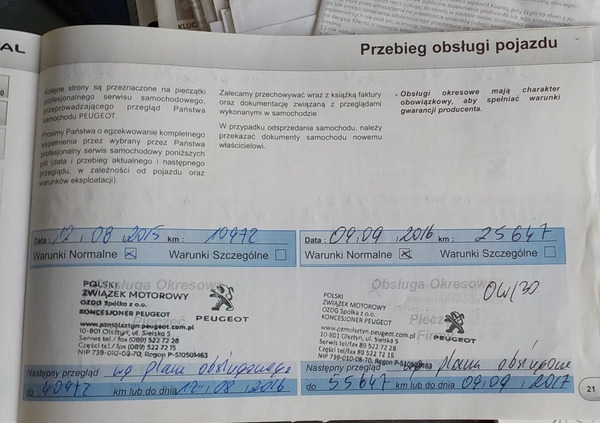 AL
KLUC
Przebieg obsługi pojazdu
Kolejne strony są przeznaczone na pieczątki
profesjonalnego serwisu samochodowego,
przeprowadzającego przegląd Państwa
samochodu PEUGEOT.
Prosimy Państwa o egzekwowanie kompletnego
wypełnienia przez wybrany przez Państwa
profesjonalny serwis samochodowy poniższych
pól (data i przebieg aktualnego i następnego
przeglądu, w zależności od pojazdu oraz
warunków eksploatacji).
Zalecamy przechowywać wraz z książką faktury
oraz dokumentację związaną z przeglądami
wykonanymi w samochodzie.
W przypadku odsprzedania samochodu, należy
przekazać dokumenty samochodu nowemu
właścicielowi.
- Obsługi okresowe mają charakter
obowiązkowy, aby spełniać warunki
gwarancji producenta.
Data : 12 , 08 , 2015 km : 10972
Warunki Normalne ☒ Warunki Szczególne ☐
Obsługa Okresowa
POLSKI
ZWIĄZEK MOTOROWY
OZDG Spółka z o.o.
KONCESJONER PEUGEOT
www.pzmolsztyn.peugeot.com.pl
10-801 Olsztyn, ul. Sielska 5
Serwis tel./ fax (089) 522 72 28
Części tel./ fax (089) 522 72 15
NIP 739-010-08-70, Regon P-510501463
PEUGEOT
Następny przegląd wg planu obsługowego
do 40972 km lub do dnia 12 , 08 , 2016
Data : 09.09 , 2016 km : 25647
Warunki Normalne ☒ Warunki Szczególne ☐
Obsługa Okresowa
0W/30
POLSKI
ZWIĄZEK MOTOROWY
OZDG Spółka z o.o.
KONCESJONER PEUGEOT
www.pzmolsztyn.peugeot.com.pl
10-801 Olsztyn, ul. Sielska 5
Serwis tel/fax 89 522 72 28
Części tel/fax 89 522 72 15
NIP 739-010-08-70, Regon P-510501463
PEUGEOT
Następny przegląd wg planu obsługowe
do 55647 km lub do dnia 09 , 09 , 2017
21